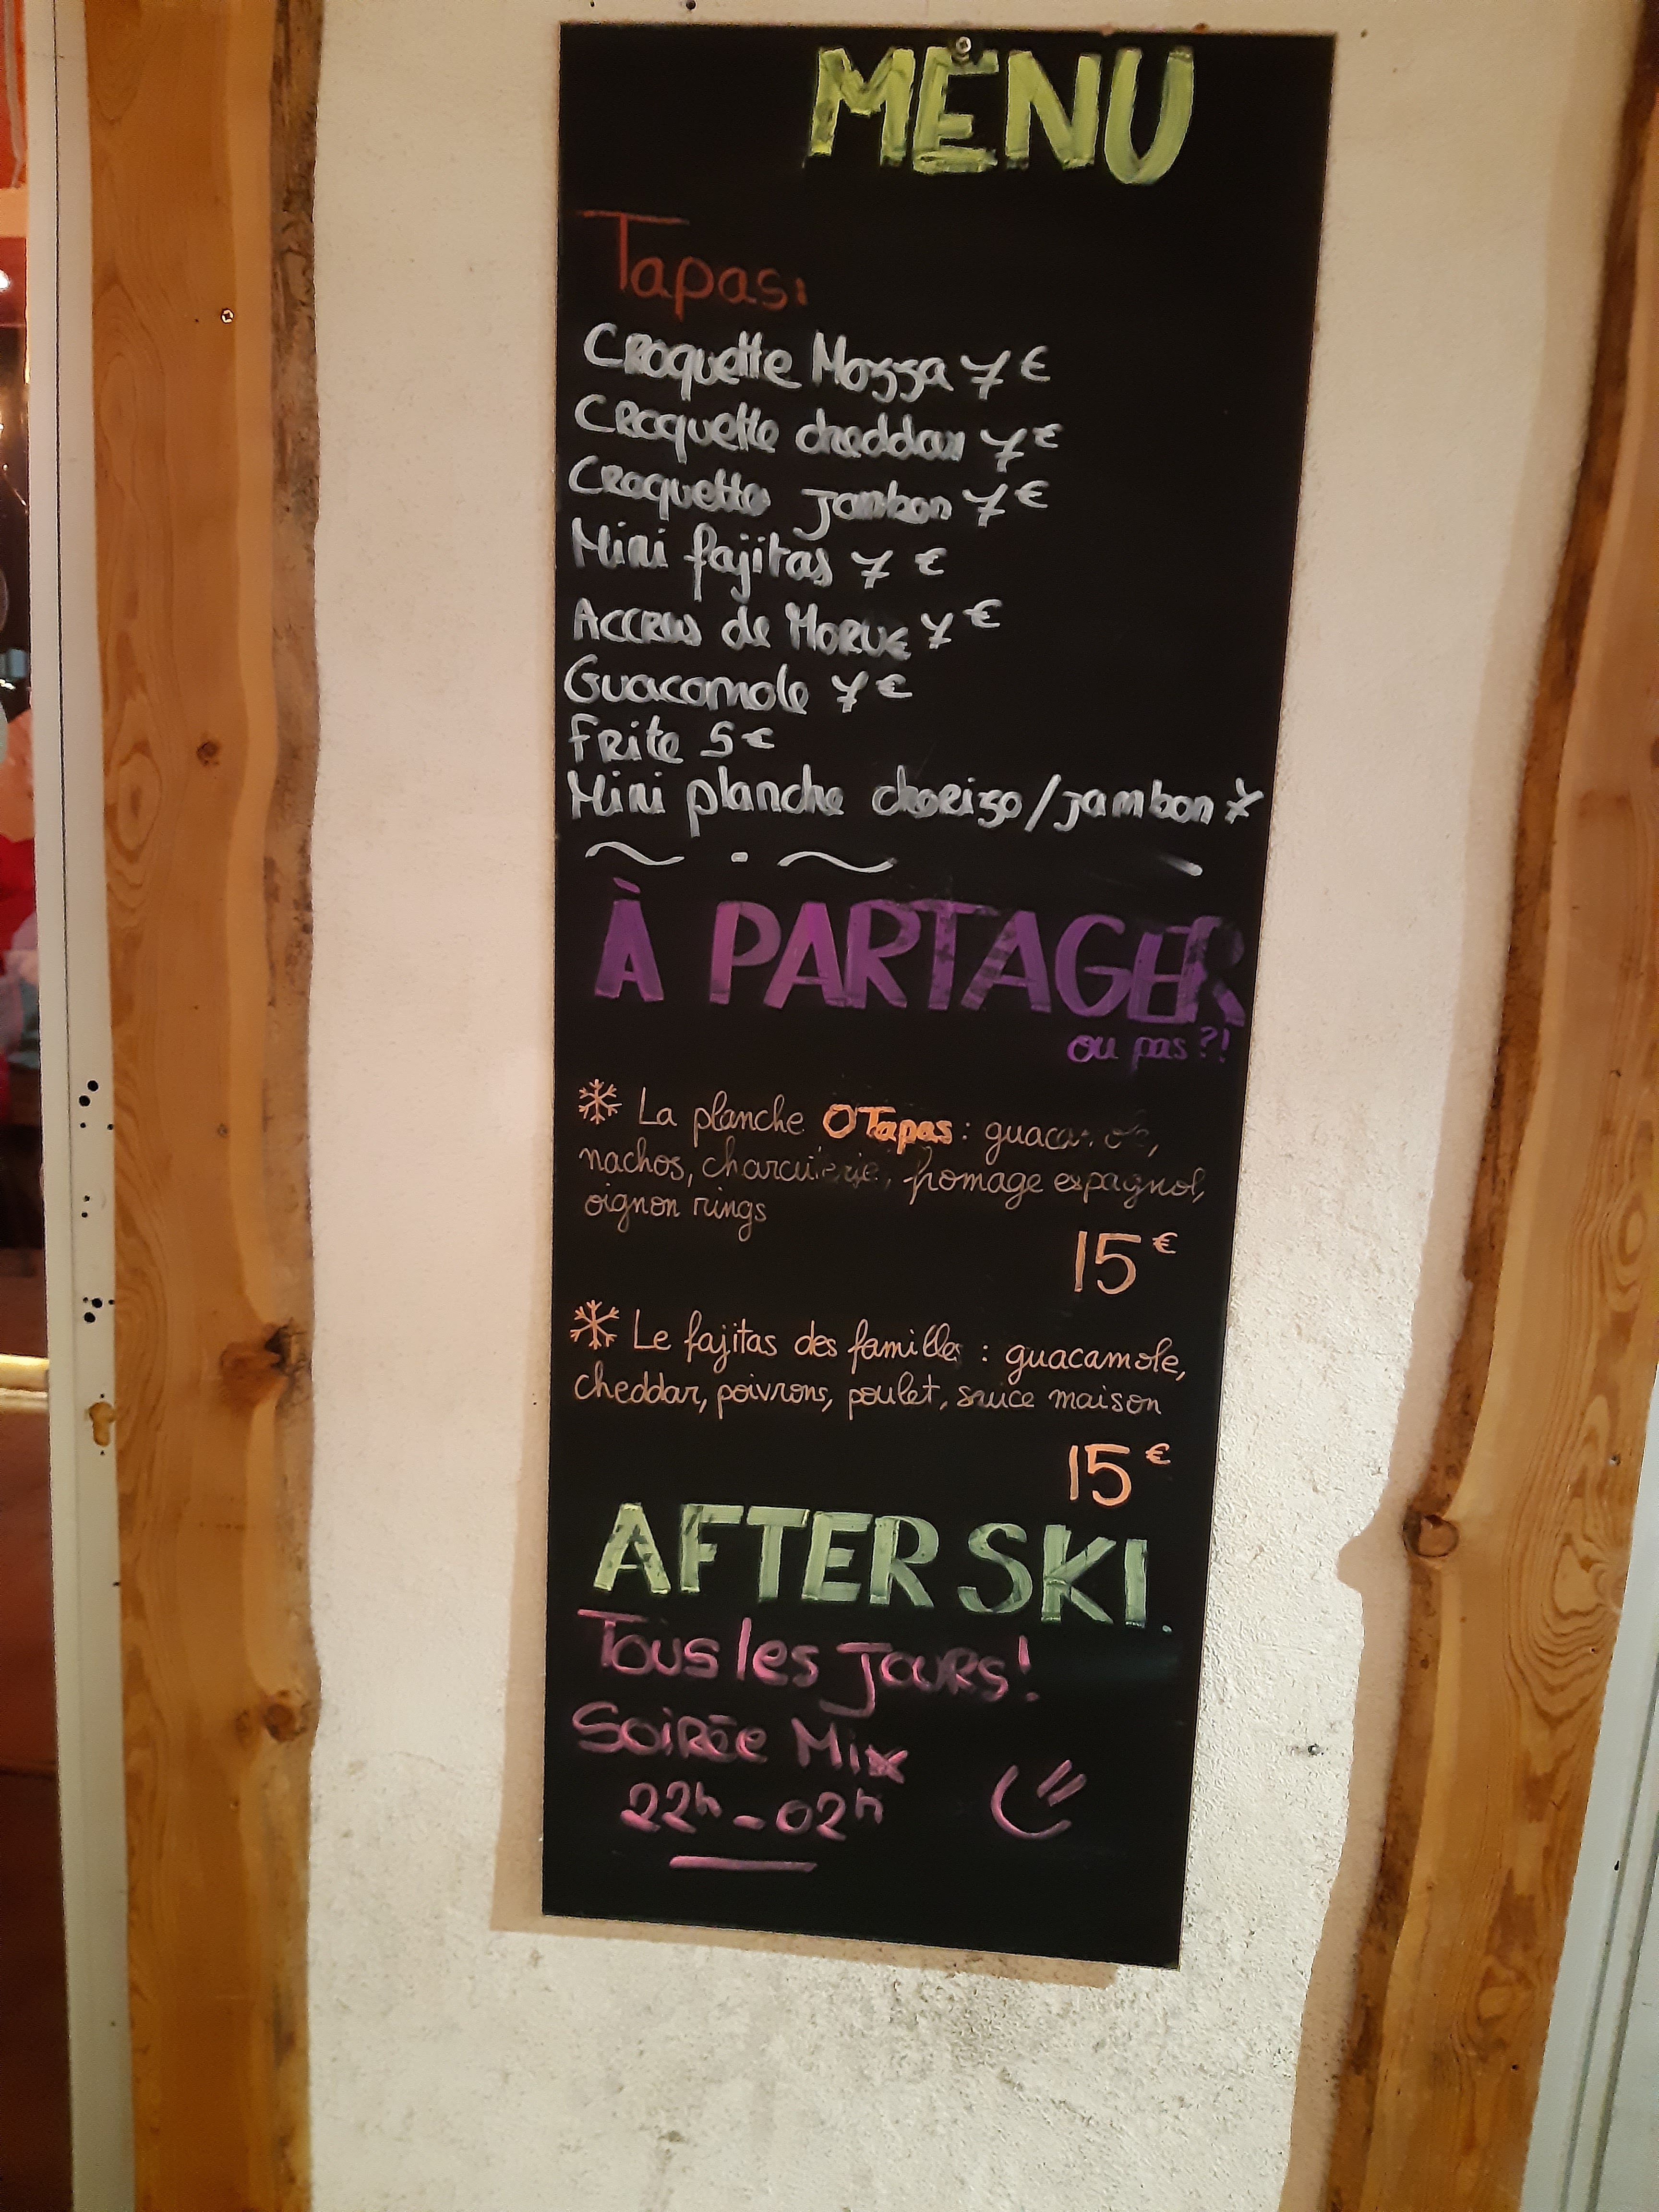 MENU
Tapas:
Croquette Mozza 7€
Croquette cheddar 7€
Croquette jambon 7€
Mini fajitas 7 €
Accras de Morue 7€
Guacamole 7€
Frite 5€
Mini planche chorizo/jambon 7
À PARTAGER
ou pas ?!
La planche O'Tapas : guacamole,
nachos, charcuterie, fromage espagnol,
oignon rings
15€
Le fajitas des familles : guacamole,
cheddar, poivrons, poulet, sauce maison
15€
AFTER SKI.
Tous les Jours!
Soirée Mix
22h - 02h